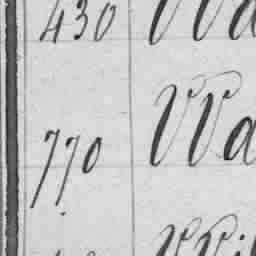 430 Wa
770 Wa